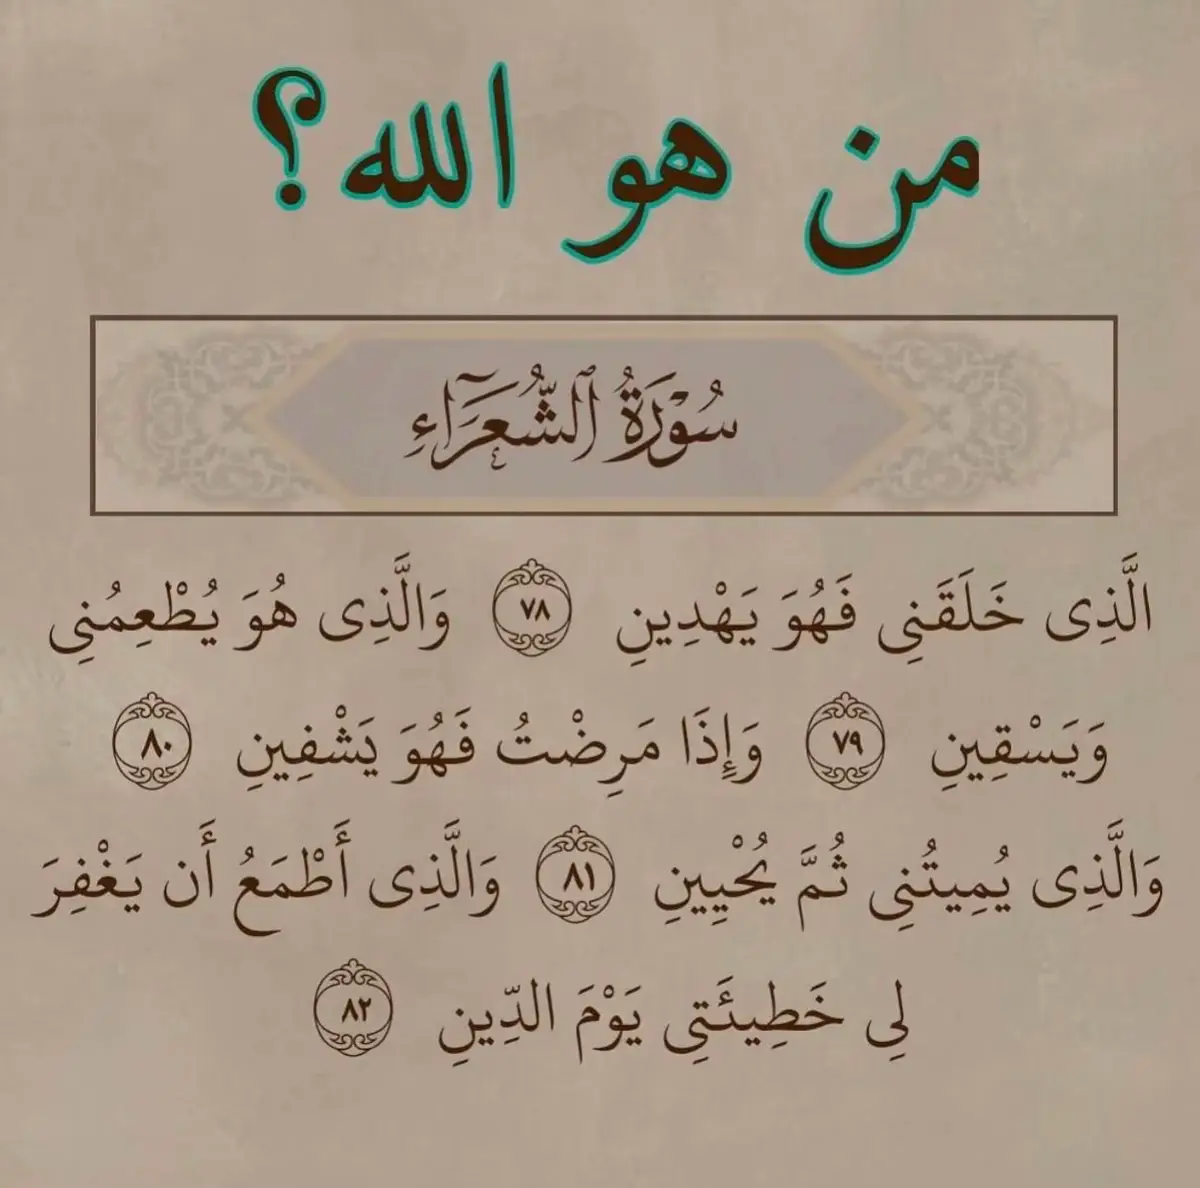 من هو الله؟
سُوْرَةُ ٱلشُّعَرَآءِ
الَّذِى خَلَقَنِى فَهُوَ يَهْدِينِ ٧٨ وَالَّذِى هُوَ يُطْعِمُنِى
وَيَسْقِينِ ٧٩ وَإِذَا مَرِضْتُ فَهُوَ يَشْفِينِ ٨٠
وَالَّذِى يُمِيتُنِى ثُمَّ يُحْيِينِ ٨١ وَالَّذِى أَطْمَعُ أَن يَغْفِرَ
لِى خَطِيئَتِى يَوْمَ الدِّينِ ٨٢